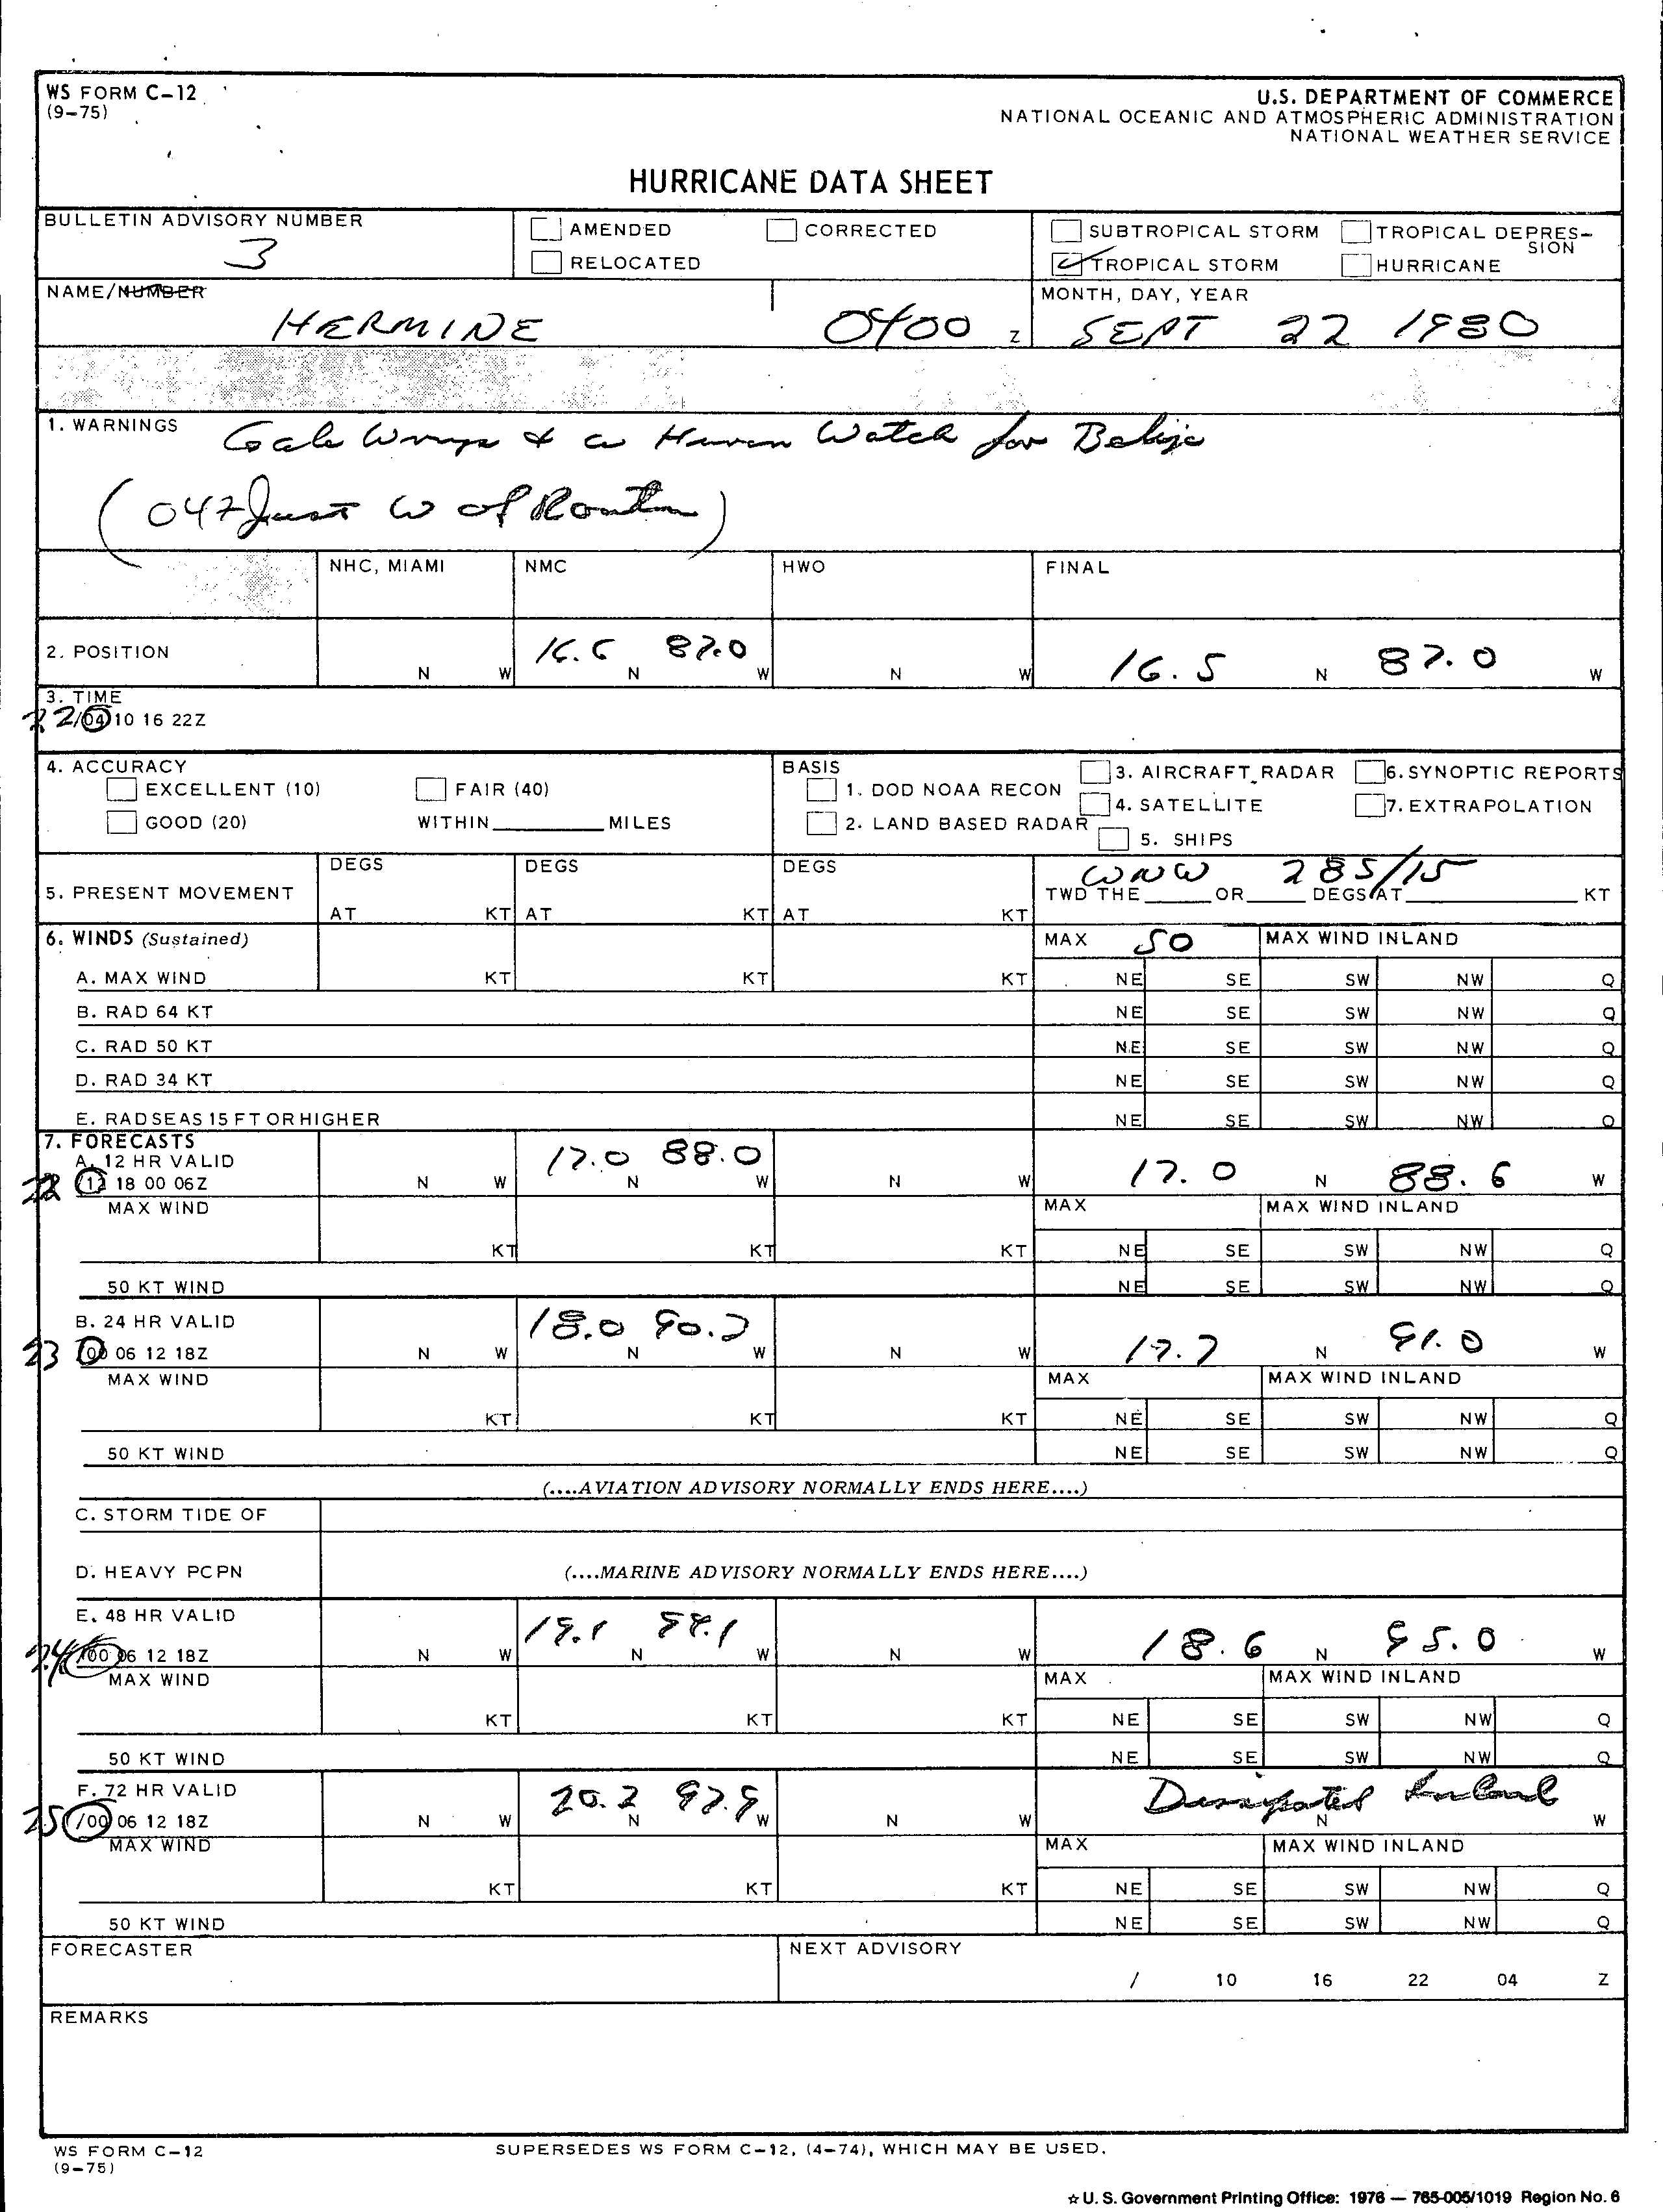 WS FORM C-12
(9-75)
U.S. DEPARTMENT OF COMMERCE
NATIONAL OCEANIC AND ATMOSPHERIC ADMINISTRATION
NATIONAL WEATHER SERVICE
HURRICANE DATA SHEET
BULLETIN ADVISORY NUMBER
3
AMENDED CORRECTED
RELOCATED
SUBTROPICAL STORM TROPICAL DEPRES-
SION
TROPICAL STORM HURRICANE
NAME/NUMBER
HERMINE
0400 Z
MONTH, DAY, YEAR
SEPT 22 1980
1. WARNINGS
Gale Wrngs & a Hurrcn Watch for Belize
(04Z Just W of Roatan)
NHC, MIAMI NMC HWO FINAL
2. POSITION
N W 16.5 N 87.0 W N W 16.5 N 87.0 W
3. TIME
22/04 10 16 22Z
4. ACCURACY
EXCELLENT (10) FAIR (40)
GOOD (20) WITHIN MILES
BASIS
1. DOD NOAA RECON 3. AIRCRAFT RADAR 6. SYNOPTIC REPORTS
2. LAND BASED RADAR 4. SATELLITE 7. EXTRAPOLATION
5. SHIPS
5. PRESENT MOVEMENT
DEGS DEGS DEGS
AT KT AT KT AT KT
TWD THE WNW OR 285/15 DEGS AT KT
6. WINDS (Sustained)
MAX 50 MAX WIND INLAND
A. MAX WIND KT KT KT NE SE SW NW Q
B. RAD 64 KT NE SE SW NW Q
C. RAD 50 KT NE SE SW NW Q
D. RAD 34 KT NE SE SW NW Q
E. RAD SEAS 15 FT OR HIGHER NE SE SW NW Q
7. FORECASTS
A. 12 HR VALID
22 /12 18 00 06Z N W 17.0 N 88.0 W N W 17.0 N 88.6 W
MAX WIND MAX MAX WIND INLAND
KT KT KT NE SE SW NW Q
50 KT WIND NE SE SW NW Q
B. 24 HR VALID
23 /00 06 12 18Z N W 18.0 N 90.2 W N W 17.7 N 91.0 W
MAX WIND MAX MAX WIND INLAND
KT KT KT NE SE SW NW Q
50 KT WIND NE SE SW NW Q
(....AVIATION ADVISORY NORMALLY ENDS HERE....)
C. STORM TIDE OF
D. HEAVY PCPN (....MARINE ADVISORY NORMALLY ENDS HERE....)
E. 48 HR VALID
24 /00 06 12 18Z N W 19.1 N 94.1 W N W 18.6 N 95.0 W
MAX WIND MAX MAX WIND INLAND
KT KT KT NE SE SW NW Q
50 KT WIND NE SE SW NW Q
F. 72 HR VALID
25 /00 06 12 18Z N W 20.2 N 97.9 W N W Dissipated Inland N W
MAX WIND MAX MAX WIND INLAND
KT KT KT NE SE SW NW Q
50 KT WIND NE SE SW NW Q
FORECASTER NEXT ADVISORY
/ 10 16 22 04 Z
REMARKS
WS FORM C-12
(9-75)
SUPERSEDES WS FORM C-12, (4-74), WHICH MAY BE USED.
☆ U. S. Government Printing Office: 1976 — 765-005/1019 Region No. 6